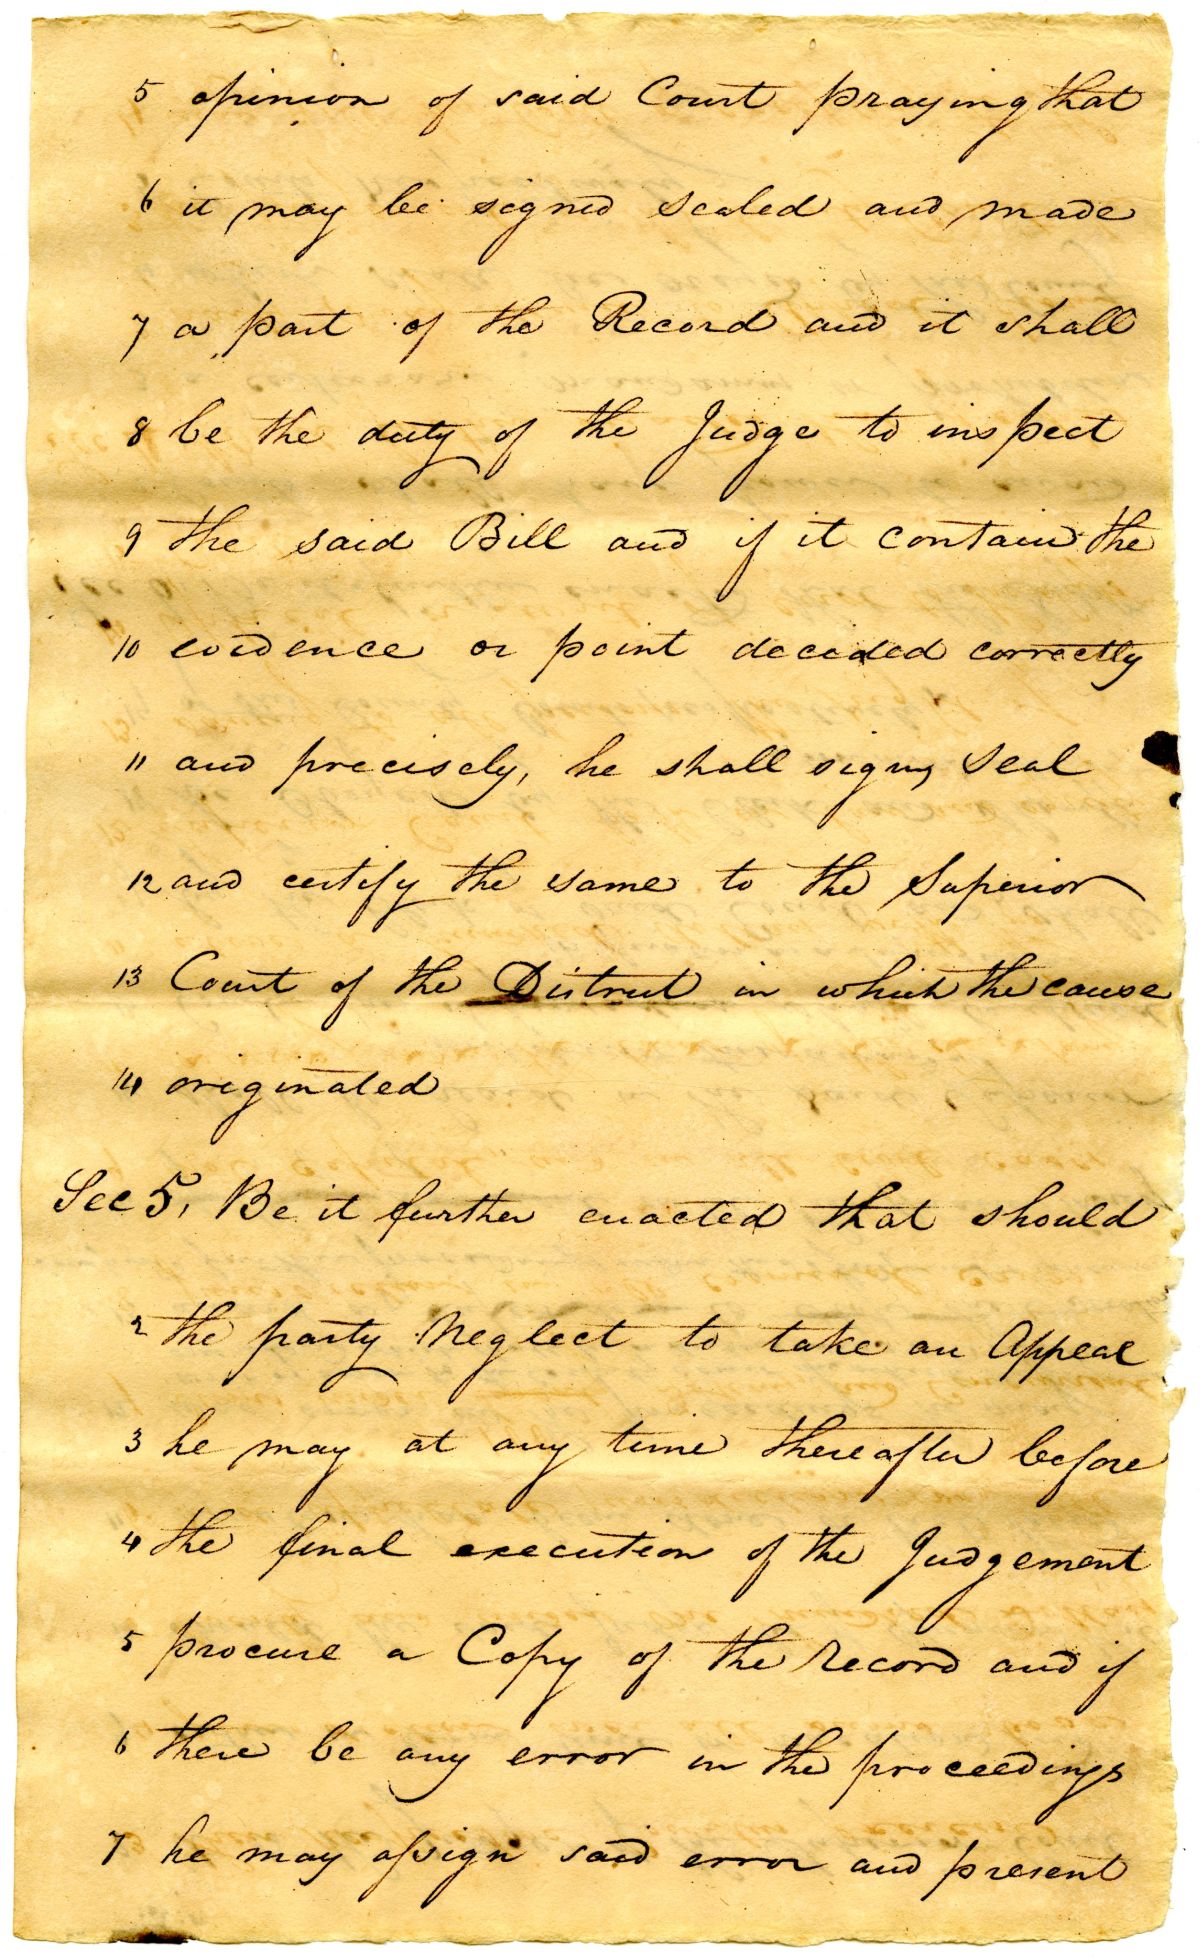 5 opinion of said Court praying that
6 it may be signed sealed and made
7 a part of the Record and it shall
8 be the duty of the Judge to inspect
9 the said Bill and if it contain the
10 evidence or point decided correctly
11 and precisely, he shall sign, seal
12 and certify the same to the Superior
13 Court of the District in which the cause
14 originated
Sec 5, Be it further enacted that should
2 the party Neglect to take an Appeal
3 he may at any time thereafter before
4 the final execution of the Judgement
5 procure a Copy of the Record and if
6 there be any error in the proceedings
7 he may assign said error and present